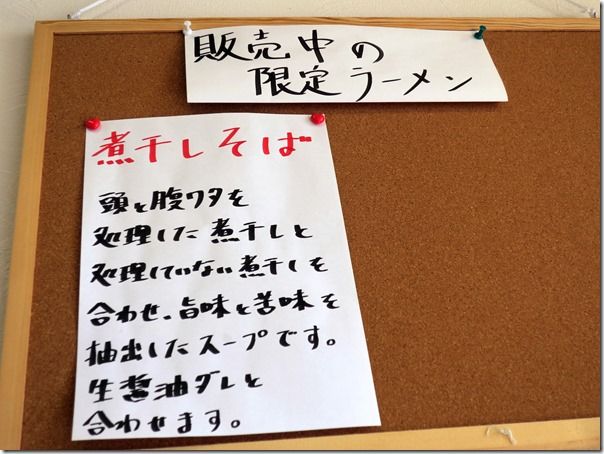 販売中の
限定ラーメン
煮干しそば
頭と腹ワタを
処理した煮干しと
処理していない煮干しを
合わせ、旨味と苦味を
抽出したスープです。
生醤油ダレと
合わせます。